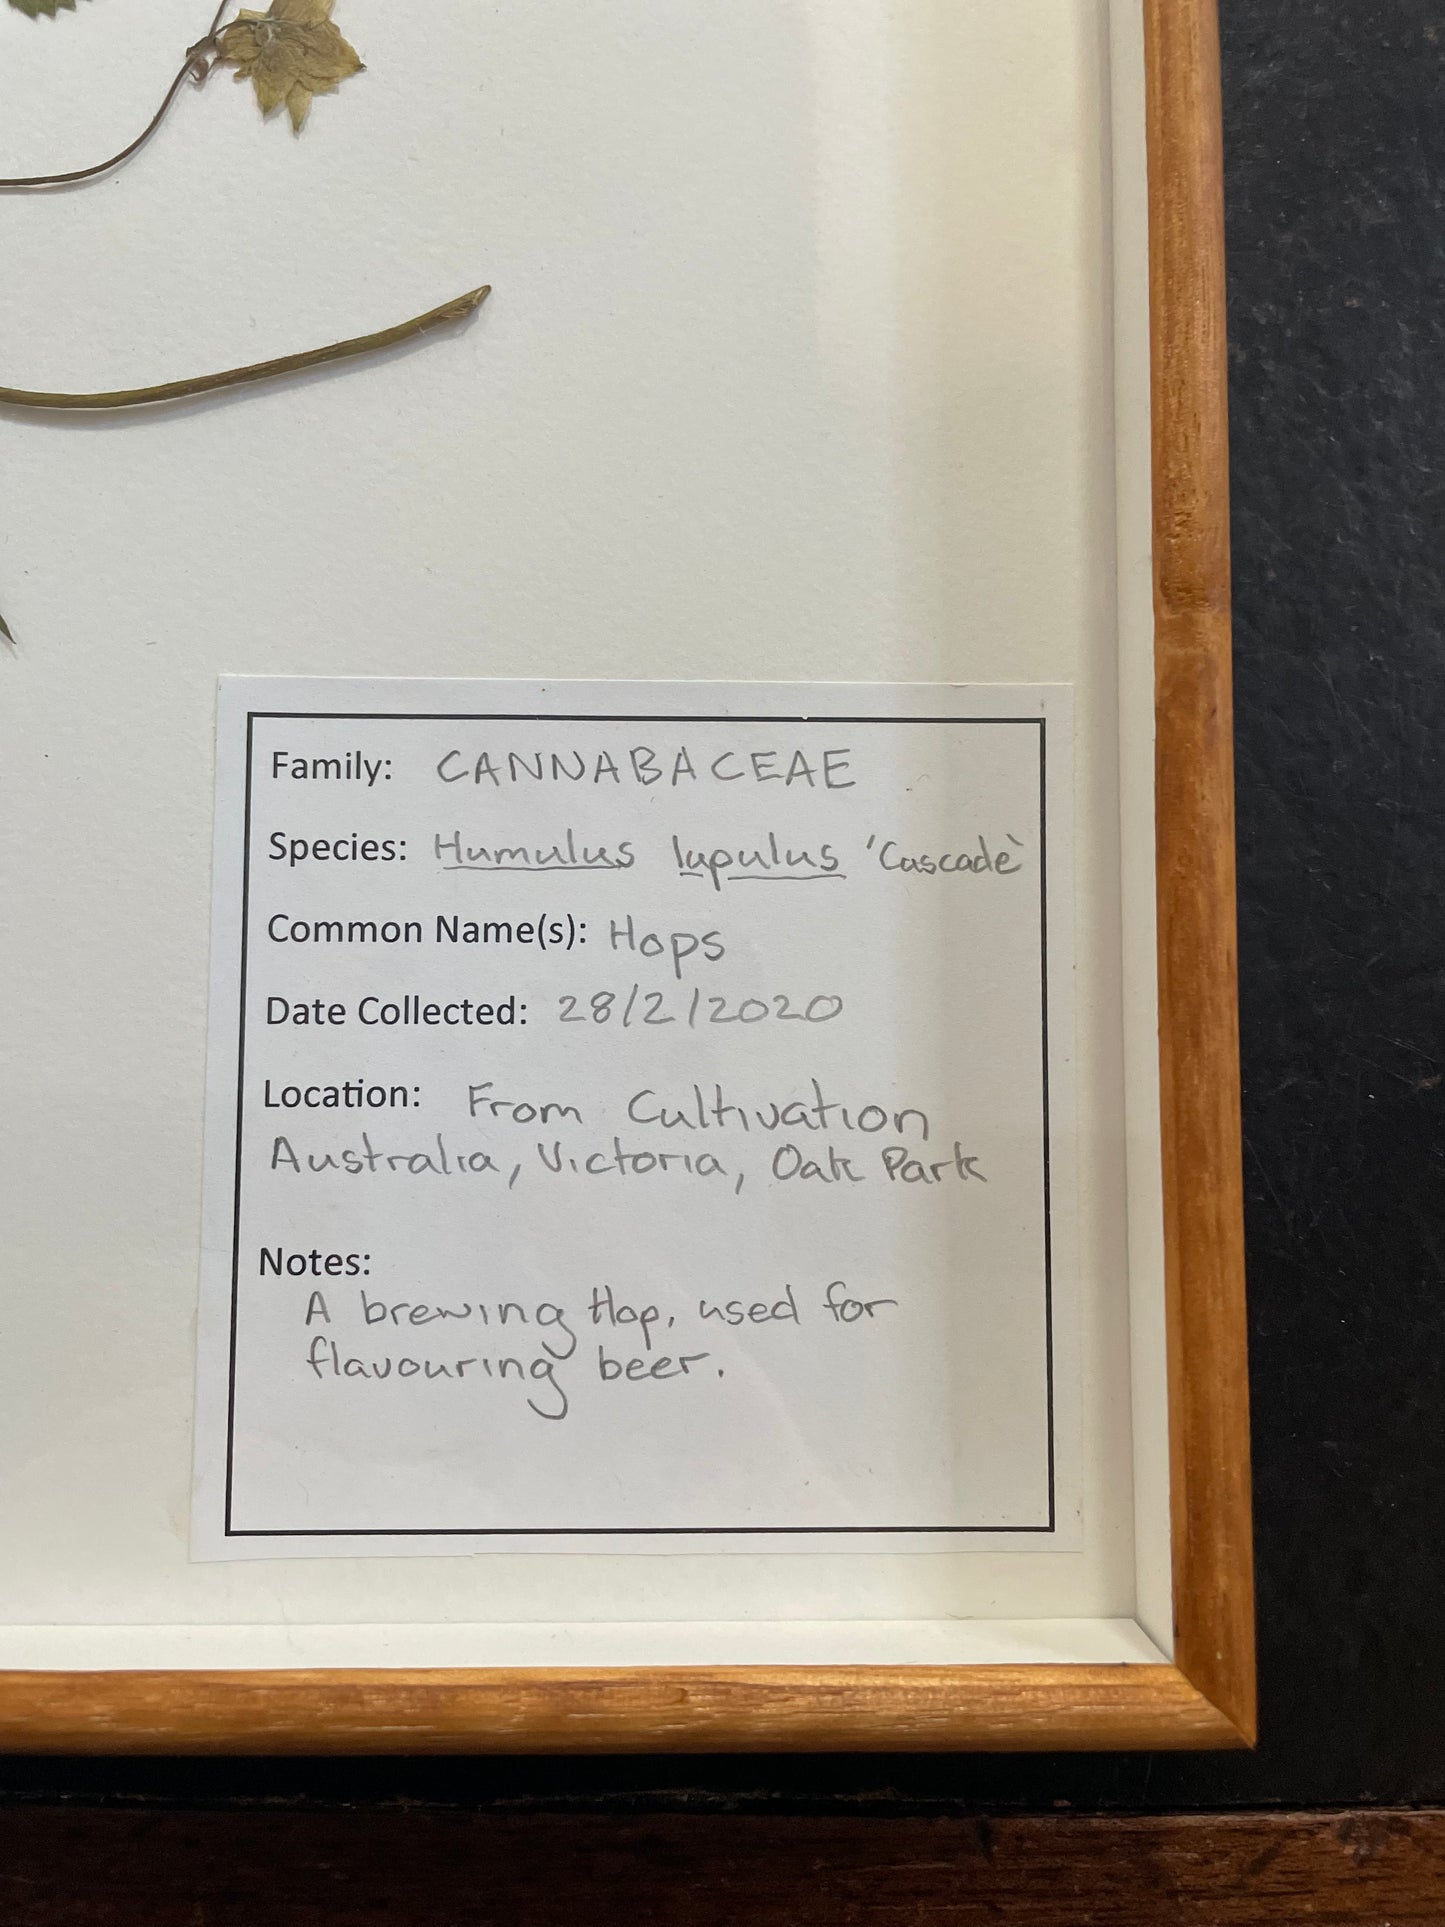 Family: CANNABACEAE
Species: Humulus lupulus 'Cascade'
Common Name(s): Hops
Date Collected: 28/2/2020
Location: From Cultivation
Australia, Victoria, Oak Park
Notes:
A brewing Hop, used for
flavouring beer.